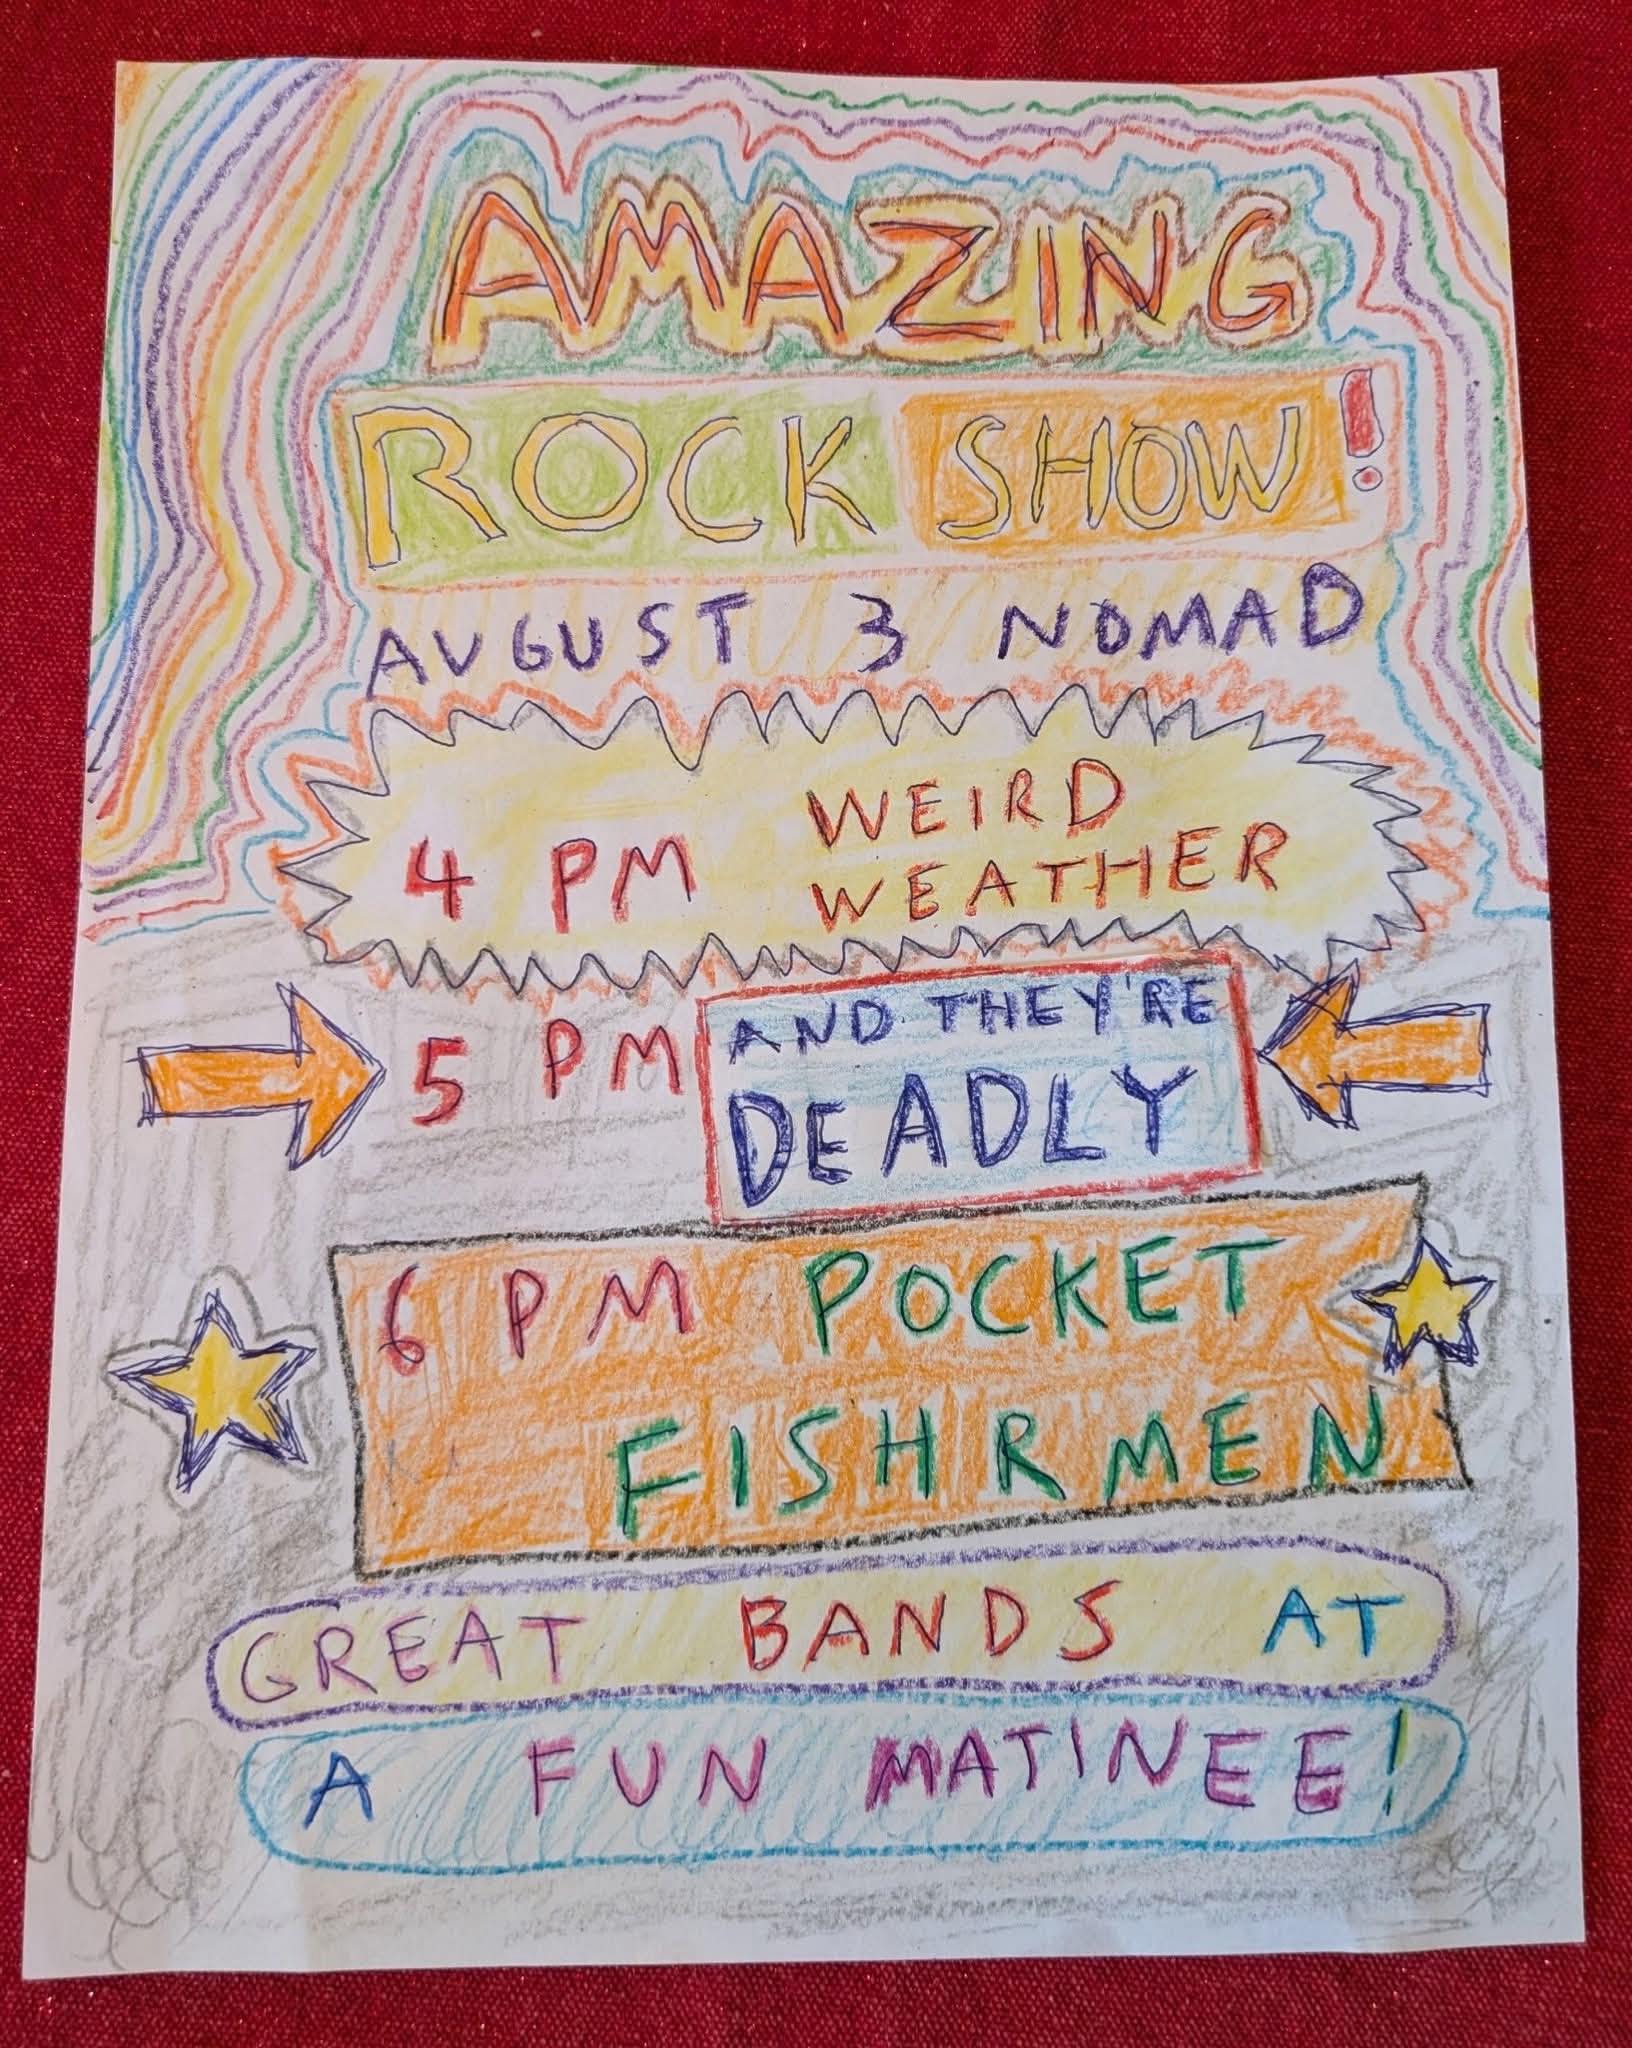 AMAZING
ROCK SHOW!
AUGUST 3 NOMAD
4 PM WEIRD
WEATHER
5 PM AND THEY'RE
DEADLY
6 PM POCKET
FISHRMEN
GREAT BANDS AT
A FUN MATINEE!